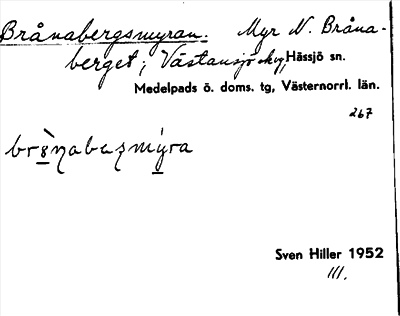 Brånabergsmyran. Myr N. Bråna-
berget; Västansjö by, Hässjö sn.
Medelpads ö. doms. tg, Västernorrl. län.
267
Sven Hiller 1952
III.